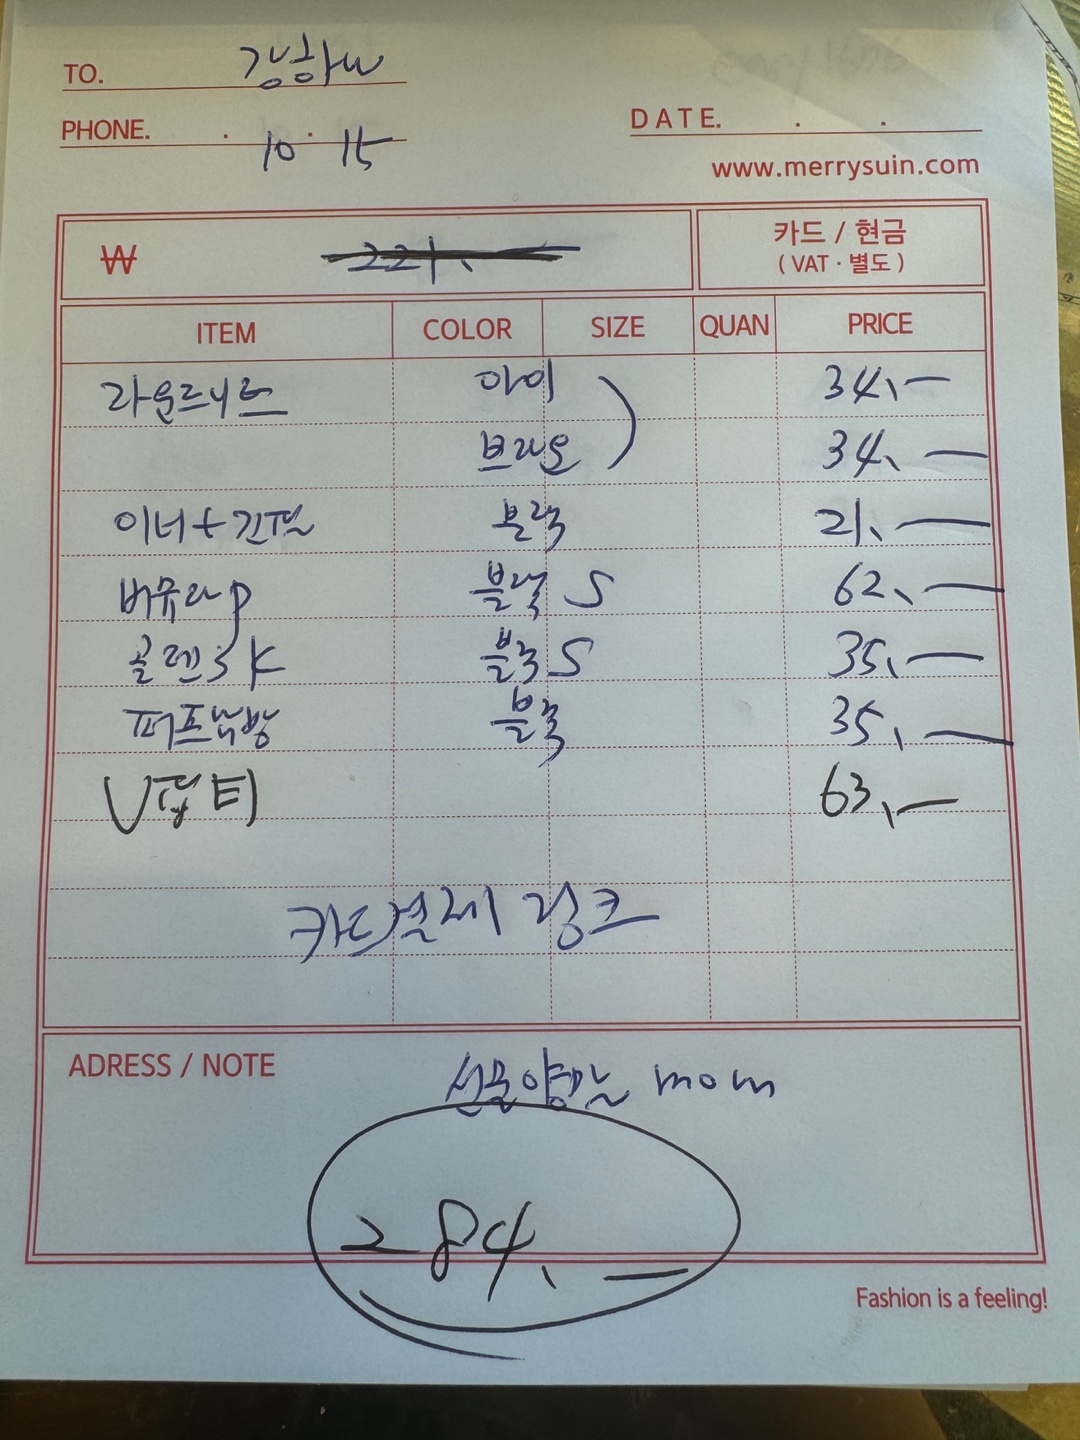 TO. 강하나
PHONE. . .
10 15
DATE. . .
www.merrysuin.com
₩ 221. 카드 / 현금
( VAT · 별도 )
ITEM COLOR SIZE QUAN PRICE
라운드니트 아이 34.—
34.—
이너+긴팔 블랙 21.—
버뮤라P 블랙 S 62.—
블랙 S 35.—
블랙 35.—
V 티 63.—
카드결제 링크
ADRESS / NOTE
선물양말 mom
284.—
Fashion is a feeling!